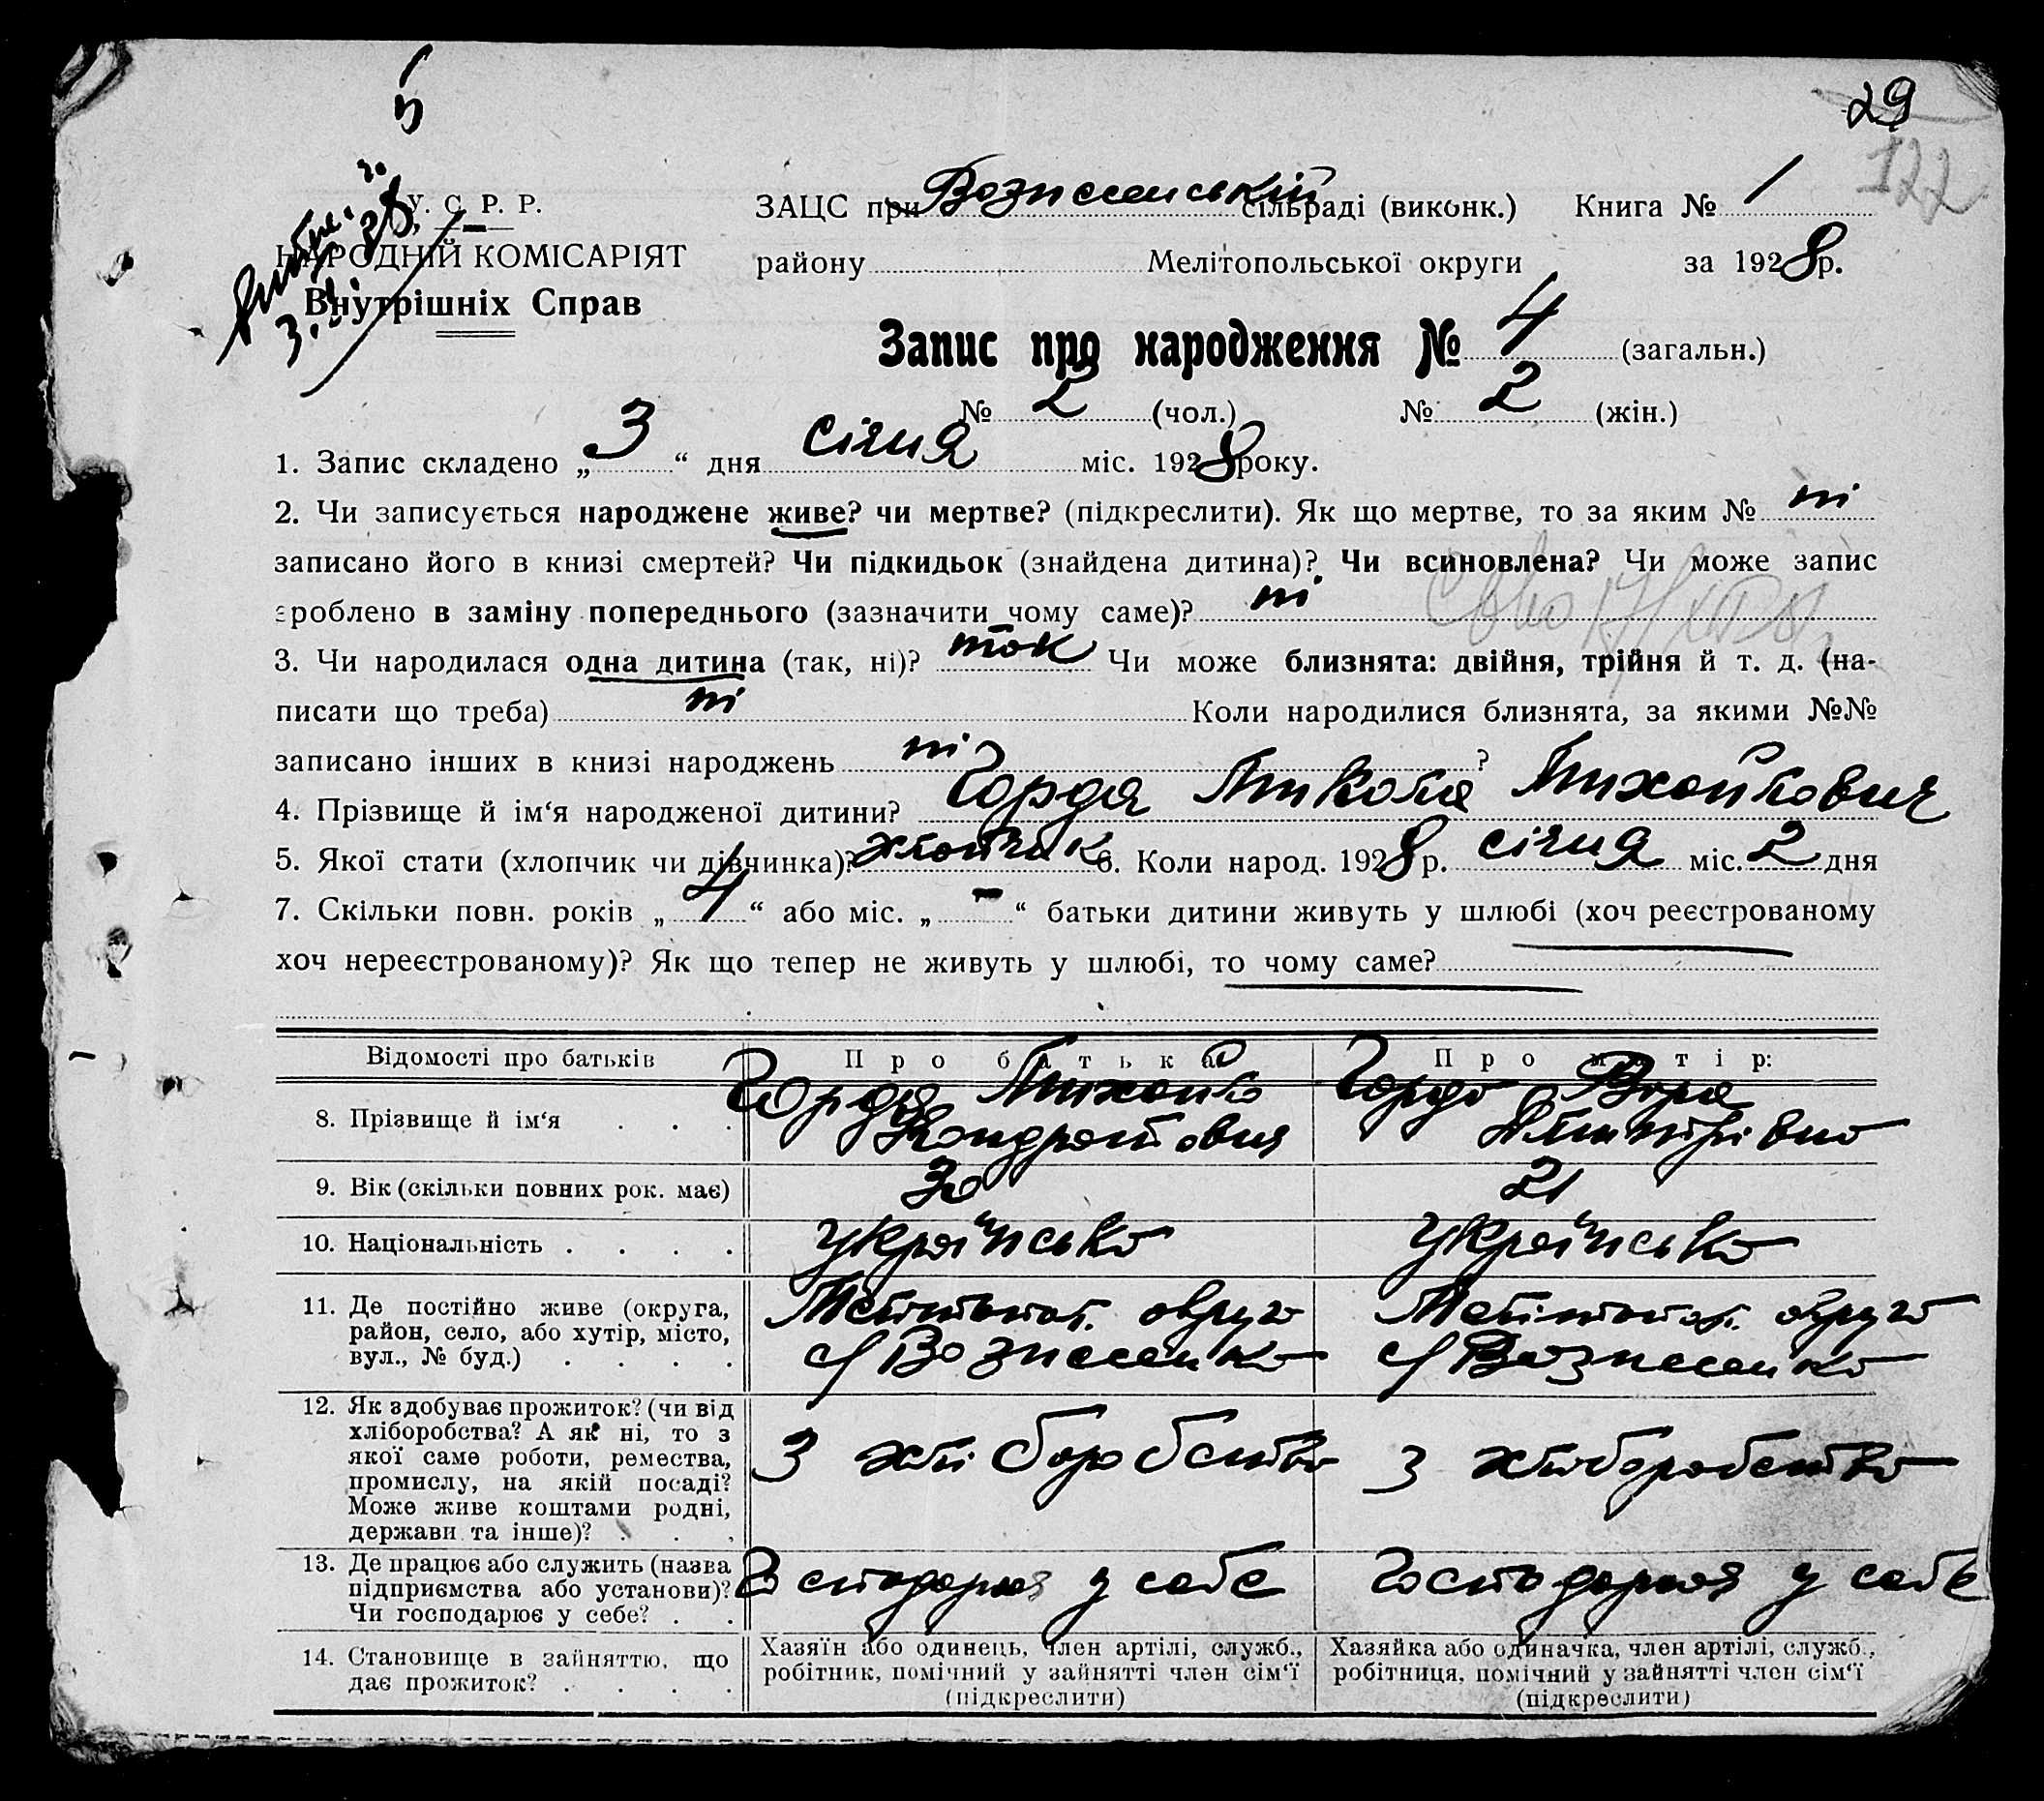 5
29
122
У. С. Р. Р.
НАРОДНІЙ КОМІСАРІЯТ
Внутрішніх Справ
ЗАЦС при Вознесенській сільраді (виконк.) Книга № 1
району Мелітопольської округи за 1928 р.
Запис про народження № 4 (загальн.)
№ 2 (чол.) № 2 (жін.)
1. Запис складено „ 3 “ дня січня міс. 1928 року.
2. Чи записується народжене живе? чи мертве? (підкреслити). Як що мертве, то за яким № ні
записано його в книзі смертей? Чи підкидьок (знайдена дитина)? Чи всиновлена? Чи може запис
зроблено в заміну попереднього (зазначити чому саме)? ні
3. Чи народилася одна дитина (так, ні)? так Чи може близнята: двійня, трійня й т. д. (на-
писати що треба) ні Коли народилися близнята, за якими №№
записано інших в книзі народжень ні ?
4. Прізвище й ім‘я народженої дитини? Горда Микола Михайлович
5. Якої стати (хлопчик чи дівчинка)? хлопчик 6. Коли народ. 1928 р. січня міс. 2 дня
7. Скільки повн. років „ 4 “ або міс. „ - “ батьки дитини живуть у шлюбі (хоч реєстрованому
хоч нереєстрованому)? Як що тепер не живуть у шлюбі, то чому саме?
Відомості про батьків
Про батька:
Про матір:
8. Прізвище й ім‘я . . .
Горда Михайло
Кондратович
Горда Віра
Дмитрівна
9. Вік (скільки повних рок. має)
30
21
10. Національність . . . .
українська
українська
11. Де постійно живе (округа,
район, село, або хутір, місто,
вул., № буд.) . . . .
Мелітопол. округа
с/Вознесенка
Мелітопол. округа
с/Вознесенка
12. Як здобуває прожиток? (чи від
хліборобства? А як ні, то з
якої саме роботи, ремества,
промислу, на якій посаді?
Може живе коштами родні,
держави та інше)? . . .
З хліборобства
З хліборобства
13. Де працює або служить (назва
підприємства або установи)?
Чи господарює у себе? . .
Господарює у себе
Господарює у себе
14. Становище в зайняттю, що
дає прожиток? . . . .
Хазяїн або одинець, член артілі, служб.,
робітник, помічний у зайнятті член сім‘ї
(підкреслити)
Хазяйка або одиначка, член артілі, служб.,
робітниця, помічний у зайнятті член сім‘ї
(підкреслити)